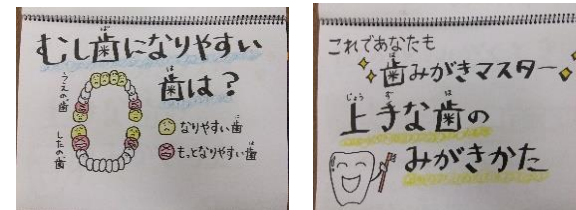 むし歯になりやすい
歯は？
うえの歯
したの歯
なりやすい歯
もっとなりやすい歯
これであなたも
歯みがきマスター
上手な歯の
みがきかた